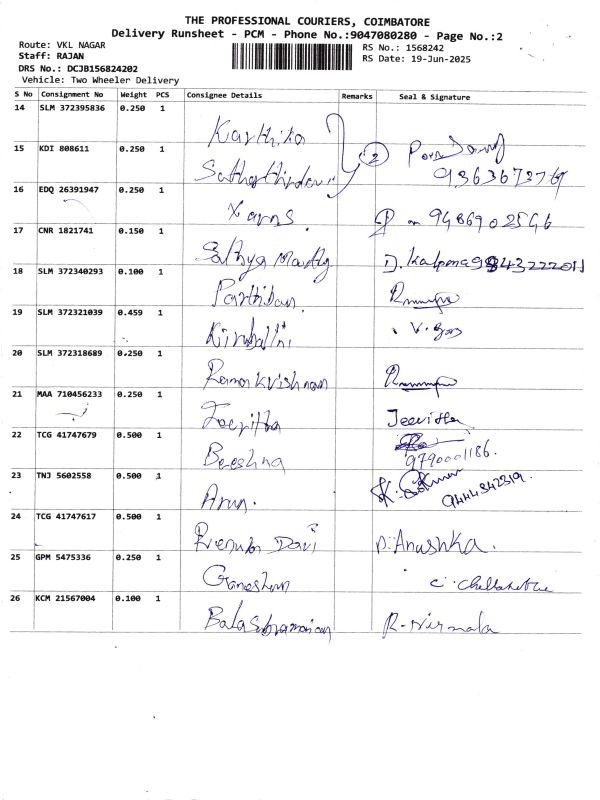 THE PROFESSIONAL COURIERS, COIMBATORE
Delivery Runsheet - PCM - Phone No.:9047080280 - Page No.:2
Route: VKL NAGAR
Staff: RAJAN
DRS No.: DCJB156824202
Vehicle: Two Wheeler Delivery
RS No.: 1568242
RS Date: 19-Jun-2025
S No Consignment No Weight PCS Consignee Details Remarks Seal & Signature
14 SLM 372395836 0.250 1 Karthika
15 KDI 808611 0.250 1 2
16 EDQ 26391947 0.250 1 9486902546
17 CNR 1821741 0.150 1 Sathya D. Kalpana
18 SLM 372340293 0.100 1 Parthiban
19 SLM 372321039 0.459 1
20 SLM 372318689 0.250 1 Ramakrishnan
21 MAA 710456233 0.250 1 Jeevitha
22 TCG 41747679 0.500 1 9790001186.
23 TNJ 5602558 0.500 1 Arun.
24 TCG 41747617 0.500 1 Anushka.
25 GPM 5475336 0.250 1 Ganeshan
26 KCM 21567004 0.100 1 R-Nirmala